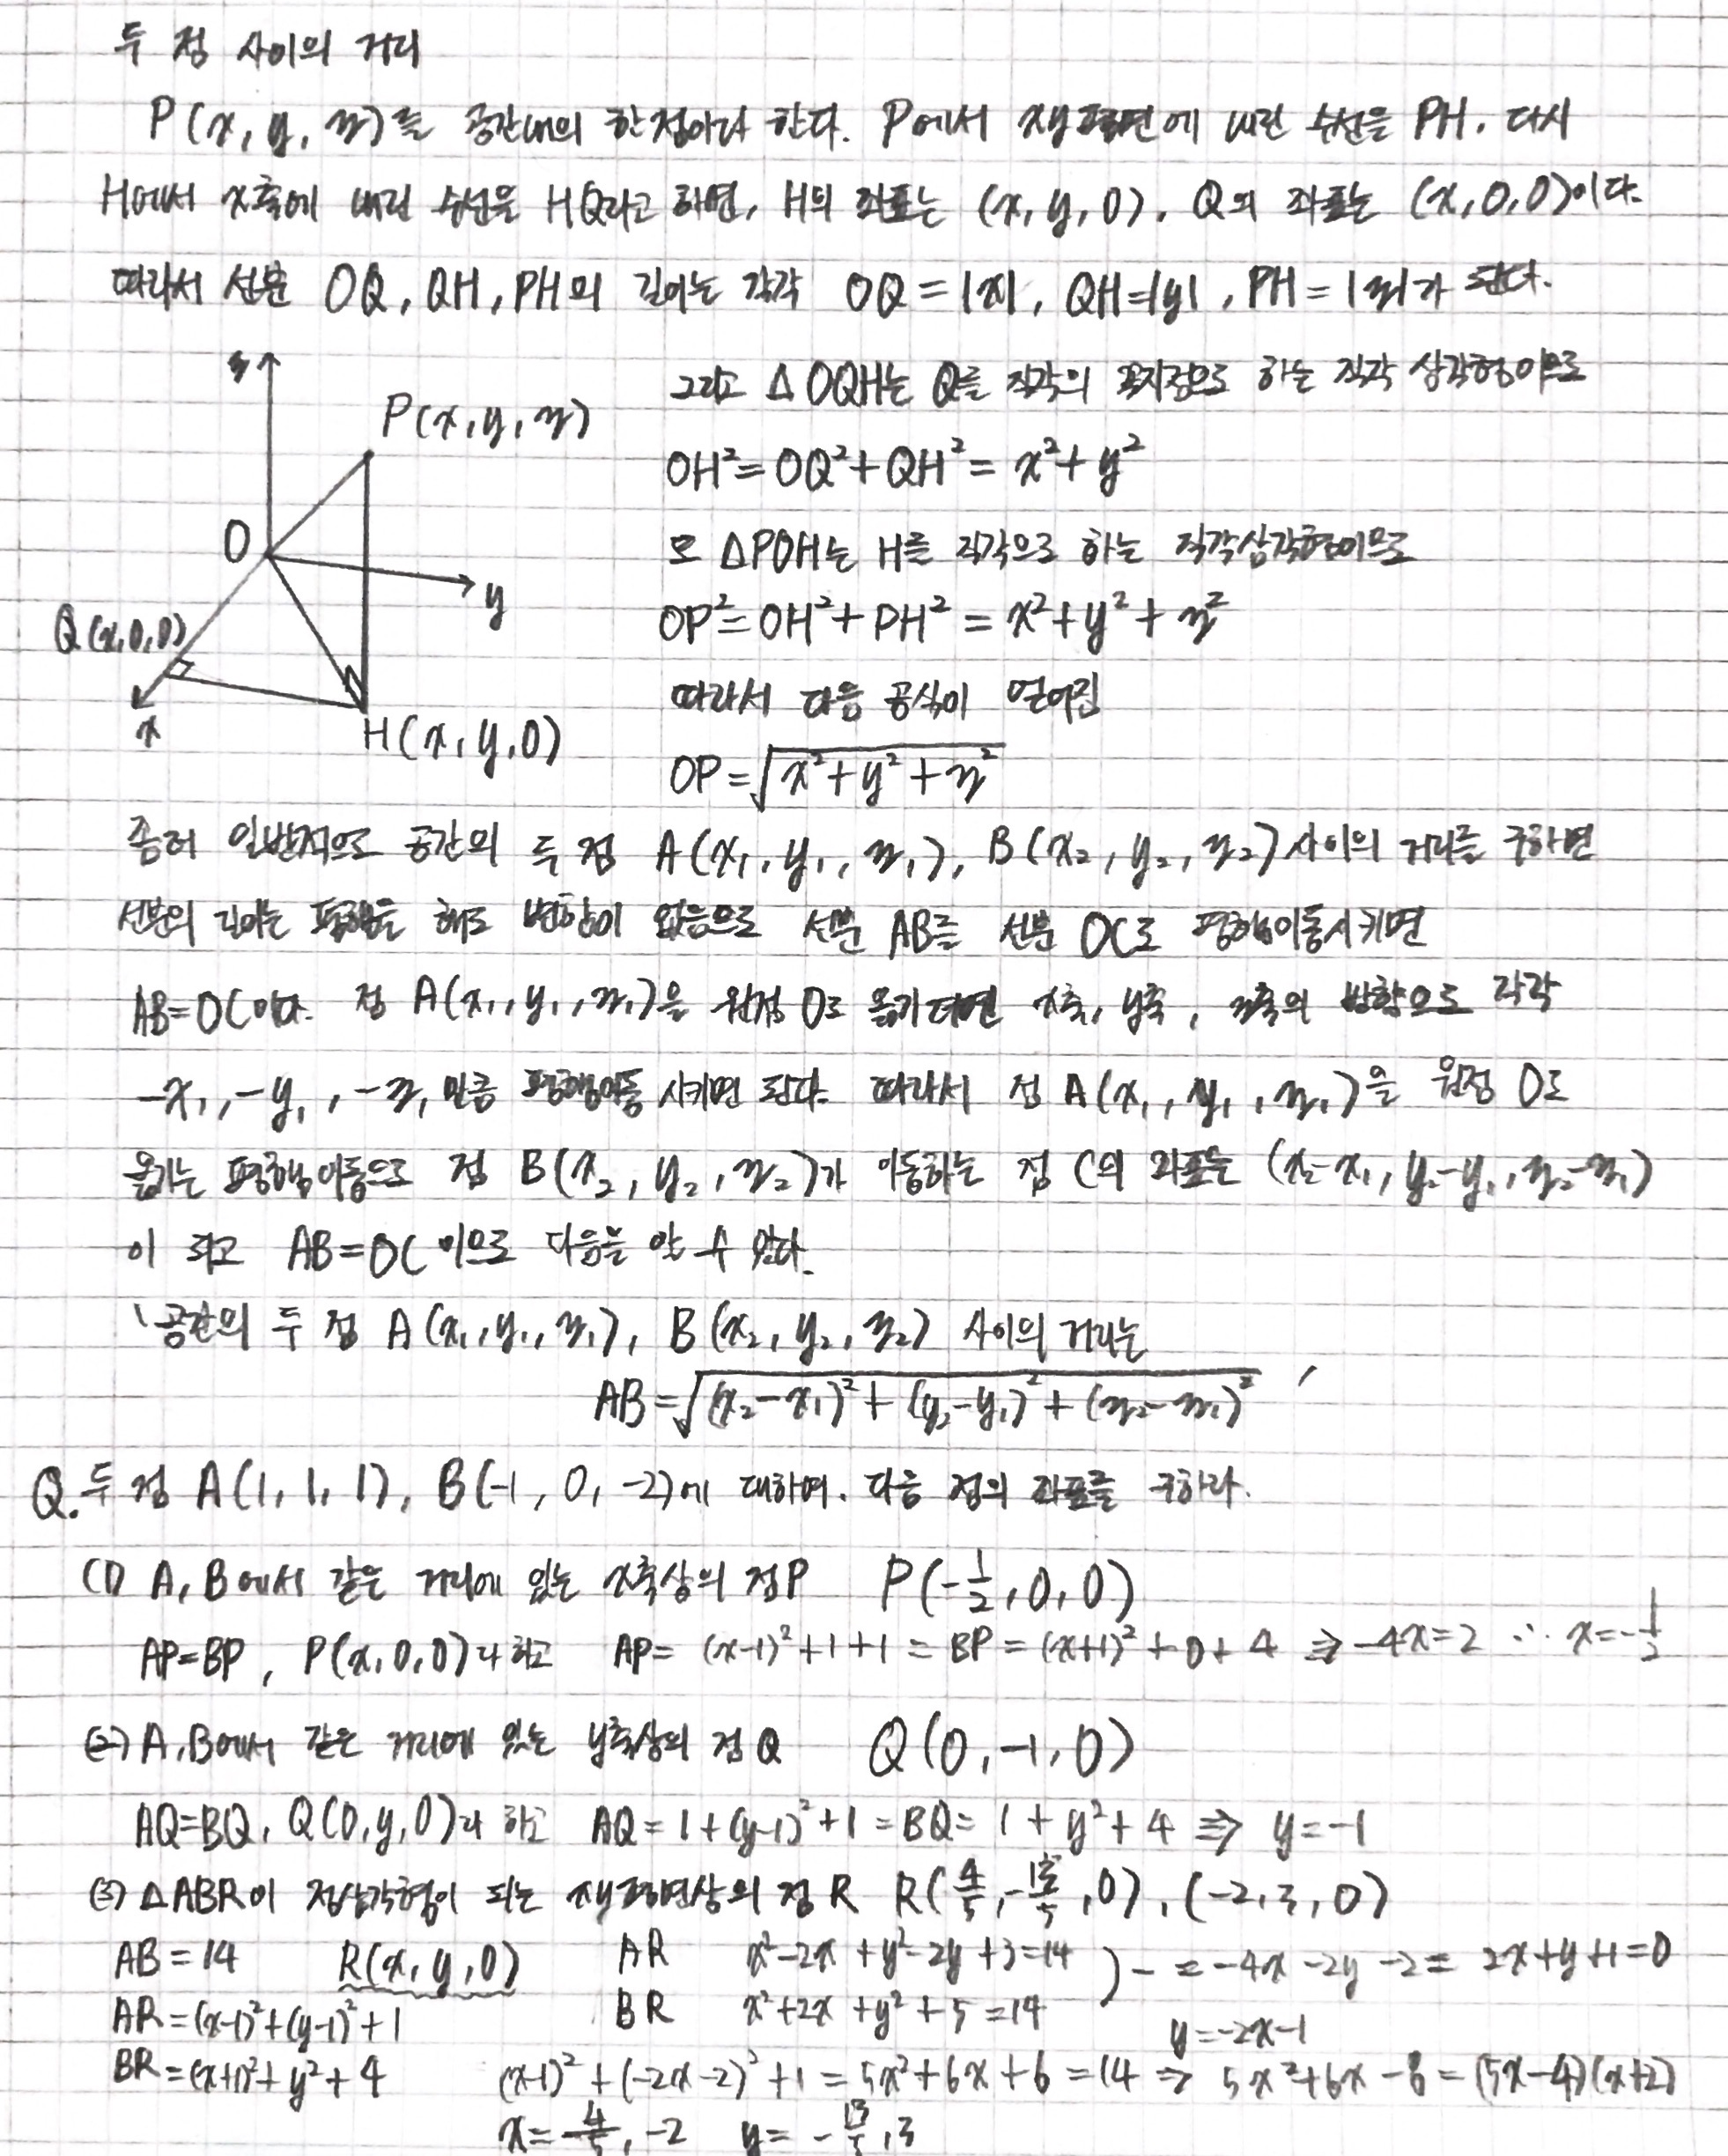 두 점 사이의 거리
P(x, y, z)를 공간내의 한점이라 한다. P에서 xy평면에 내린 수선을 PH, 다시
H에서 x축에 내린 수선을 HQ라고 하면, H의 좌표는 (x, y, 0), Q의 좌표는 (x, 0, 0)이다.
따라서 선분 OQ, QH, PH의 길이는 각각 OQ = |x|, QH=|y|, PH = |z|가 된다.
z
P(x, y, z)
O
y
Q(x,0,0)
x
H(x, y, 0)
그리고 △OQH는 Q를 직각의 꼭지점으로 하는 직각 삼각형이므로
OH²=OQ²+QH²= x²+y²
또 △POH는 H를 직각으로 하는 직각삼각형이므로
OP²=OH²+PH² = x²+y²+z²
따라서 다음 공식이 얻어짐
OP=√(x²+y²+z²)
좀더 일반적으로 공간의 두 점 A(x₁, y₁, z₁), B(x₂, y₂, z₂)사이의 거리를 구하면
선분의 길이는 해도 변함이 없음으로 선분 AB를 선분 OC로 평행이동시키면
AB=OC이다. 점 A(x₁, y₁, z₁)을 원점 O로 옮기려면 x축, y축, z축의 방향으로 각각
-x₁, -y₁, -z₁ 만큼 평행이동 시키면 된다. 따라서 점 A(x₁, y₁, z₁)을 원점 O로
옮기는 평행이동으로 점 B(x₂, y₂, z₂)가 이동하는 점 C의 좌표는 (x₂-x₁, y₂-y₁, z₂-z₁)
이 되고 AB=OC 이므로 다음을 알 수 있다.
'공간의 두 점 A(x₁, y₁, z₁), B(x₂, y₂, z₂) 사이의 거리는
AB=√((x₂-x₁)²+(y₂-y₁)²+(z₂-z₁)²) '
Q. 두 점 A(1, 1, 1), B(-1, 0, -2)에 대하여. 다음 점의 좌표를 구하라.
(1) A, B에서 같은 거리에 있는 x축상의 점P P(-1/2, 0, 0)
AP=BP, P(x, 0, 0)라 하고 AP= (x-1)²+1+1 = BP = (x+1)²+0+4 ⇒ -4x=2 ∴ x=-1/2
(2) A, B에서 같은 거리에 있는 y축상의 점Q Q(0, -1, 0)
AQ=BQ, Q(0, y, 0)라 하고 AQ = 1+(y-1)²+1 = BQ = 1+y²+4 ⇒ y=-1
(3) △ABR이 정삼각형이 되는 xy평면상의 점 R R(4/5, -13/5, 0), (-2, 3, 0)
AB = 14 R(x, y, 0) AR x²-2x+y²-2y+3=14 ) - = -4x-2y-2= 2x+y+1=0
AR = (x-1)²+(y-1)²+1 BR x²+2x+y²+5=14 y=-2x-1
BR = (x+1)²+y²+4 (x-1)²+(-2x-2)²+1 = 5x²+6x+6 = 14 ⇒ 5x²+6x-8 = (5x-4)(x+2)
x= 4/5, -2 y= -13/5, 3